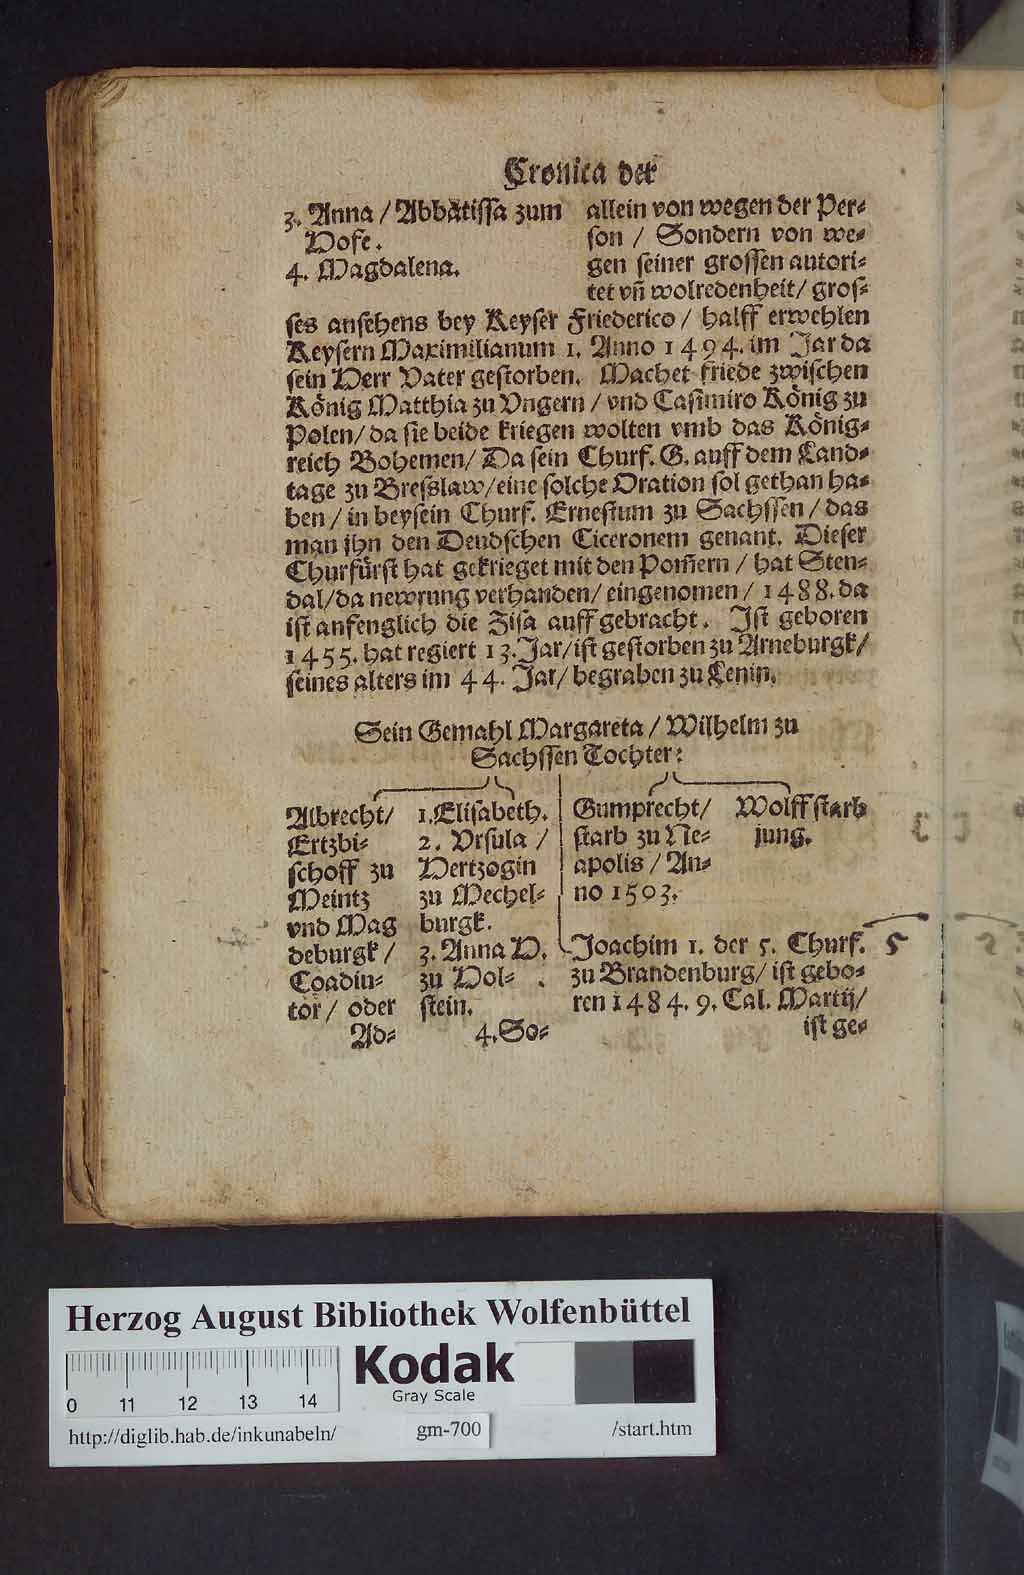 Cronica der
3. Anna / Abbätissa zum
Hofe.
4. Magdalena.
allein von wegen der Per⸗
son / Sondern von we⸗
gen seiner grossen autori⸗
tet vñ wolredenheit/ gros⸗
ses ansehens bey Keyser Friederico / halff erwehlen
Keysern Maximilianum 1. Anno 1494. im Jar da
sein Herr Vater gestorben. Machet friede zwischen
König Matthia zu Vngern / vnd Casimiro König zu
Polen/ da sie beide kriegen wolten vmb das König⸗
reich Bohemen/ Da sein Churf. G. auff dem Land⸗
tage zu Bresslaw/eine solche Oration sol gethan ha⸗
ben / in beysein Churf. Ernestum zu Sachssen / das
man jhn den Deudschen Ciceronem genant. Dieser
Churfürst hat gekrieget mit den Pom̄ern / hat Sten⸗
dal/da newrung verhanden/ eingenomen / 1488. da
ist anfenglich die Zisa auff gebracht. Ist geboren
1455. hat regiert 13. Jar/ist gestorben zu Arneburgk/
seines alters im 44. Jar/ begraben zu Lenin.
Sein Gemahl Margareta / Wilhelm zu
Sachssen Tochter:
Albrecht/
Ertzbi⸗
schoff zu
Meintz
vnd Mag
deburgk /
Coadiu⸗
tor / oder
Ad⸗
1. Elisabeth.
2. Vrsula /
Hertzogin
zu Mechel⸗
burgk.
3. Anna H.
zu Hol⸗
stein.
4. So⸗
Gumprecht/
starb zu Ne⸗
apolis / An⸗
no 1503.
Wolff starb
jung.
Joachim 1. der 5. Churf. 5
zu Brandenburg/ ist gebo⸗
ren 1484. 9. Cal. Martij/
ist ge⸗
Herzog August Bibliothek Wolfenbüttel
Kodak
Gray Scale
0 11 12 13 14
http://diglib.hab.de/inkunabeln/ gm-700 /start.htm